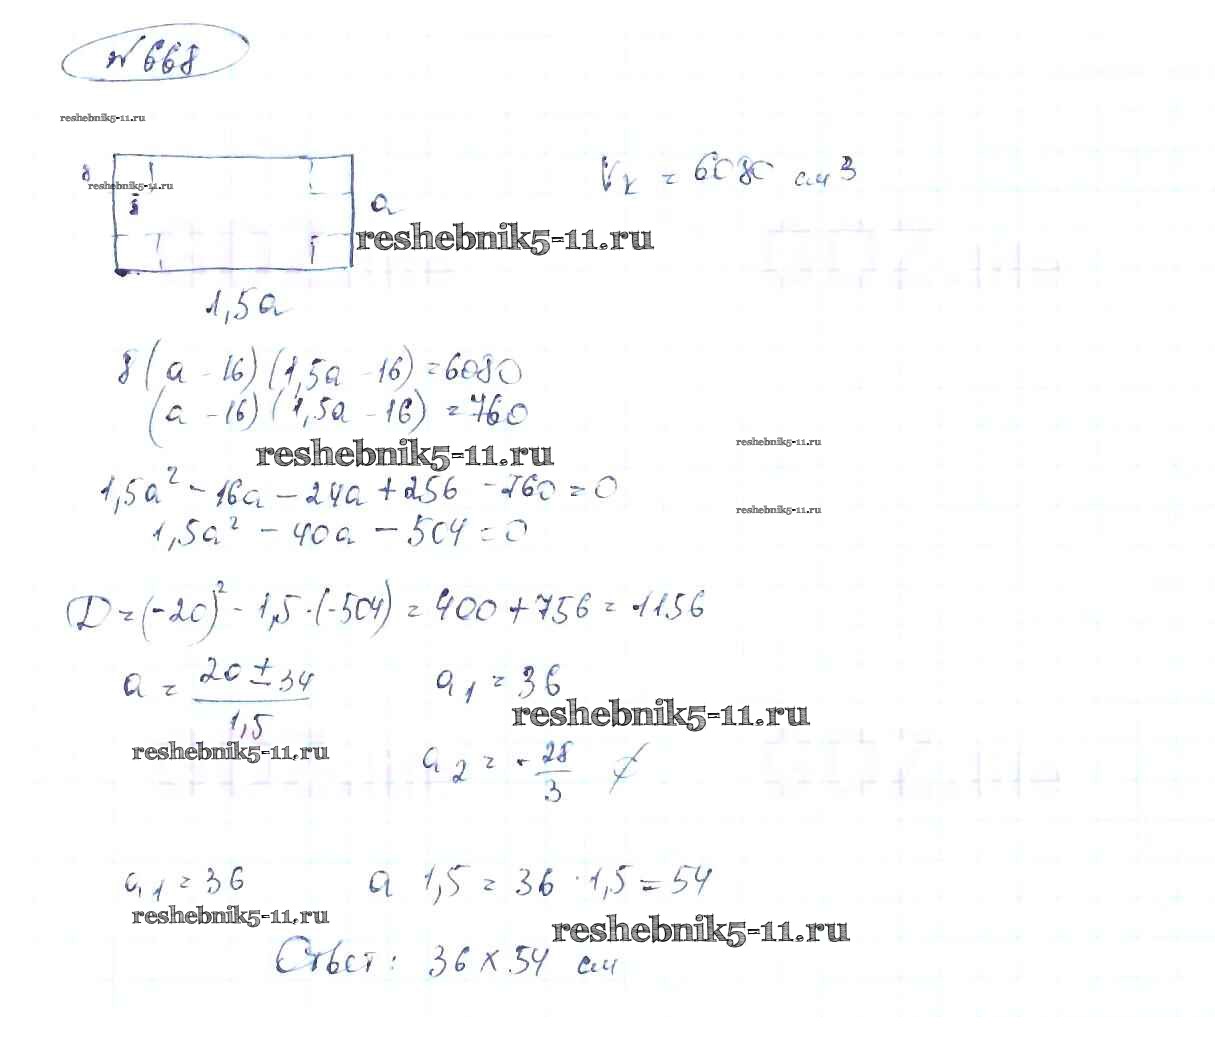 № 668
reshebnik5-11.ru
8
reshebnik5-11.ru
8
a
Vк = 6080 см3
reshebnik5-11.ru
1,5a
8(a - 16)(1,5a - 16) = 6080
(a - 16)(1,5a - 16) = 760
reshebnik5-11.ru
reshebnik5-11.ru
1,5a² - 16a - 24a + 256 - 760 = 0
reshebnik5-11.ru
1,5a² - 40a - 504 = 0
D = (-20)² - 1,5·(-504) = 400 + 756 = 1156
a = (20 ± 34)/1,5
a1 = 36
reshebnik5-11.ru
reshebnik5-11.ru
a2 = -28/3
a1 = 36
a 1,5 = 36 · 1,5 = 54
reshebnik5-11.ru
reshebnik5-11.ru
Ответ: 36 × 54 см